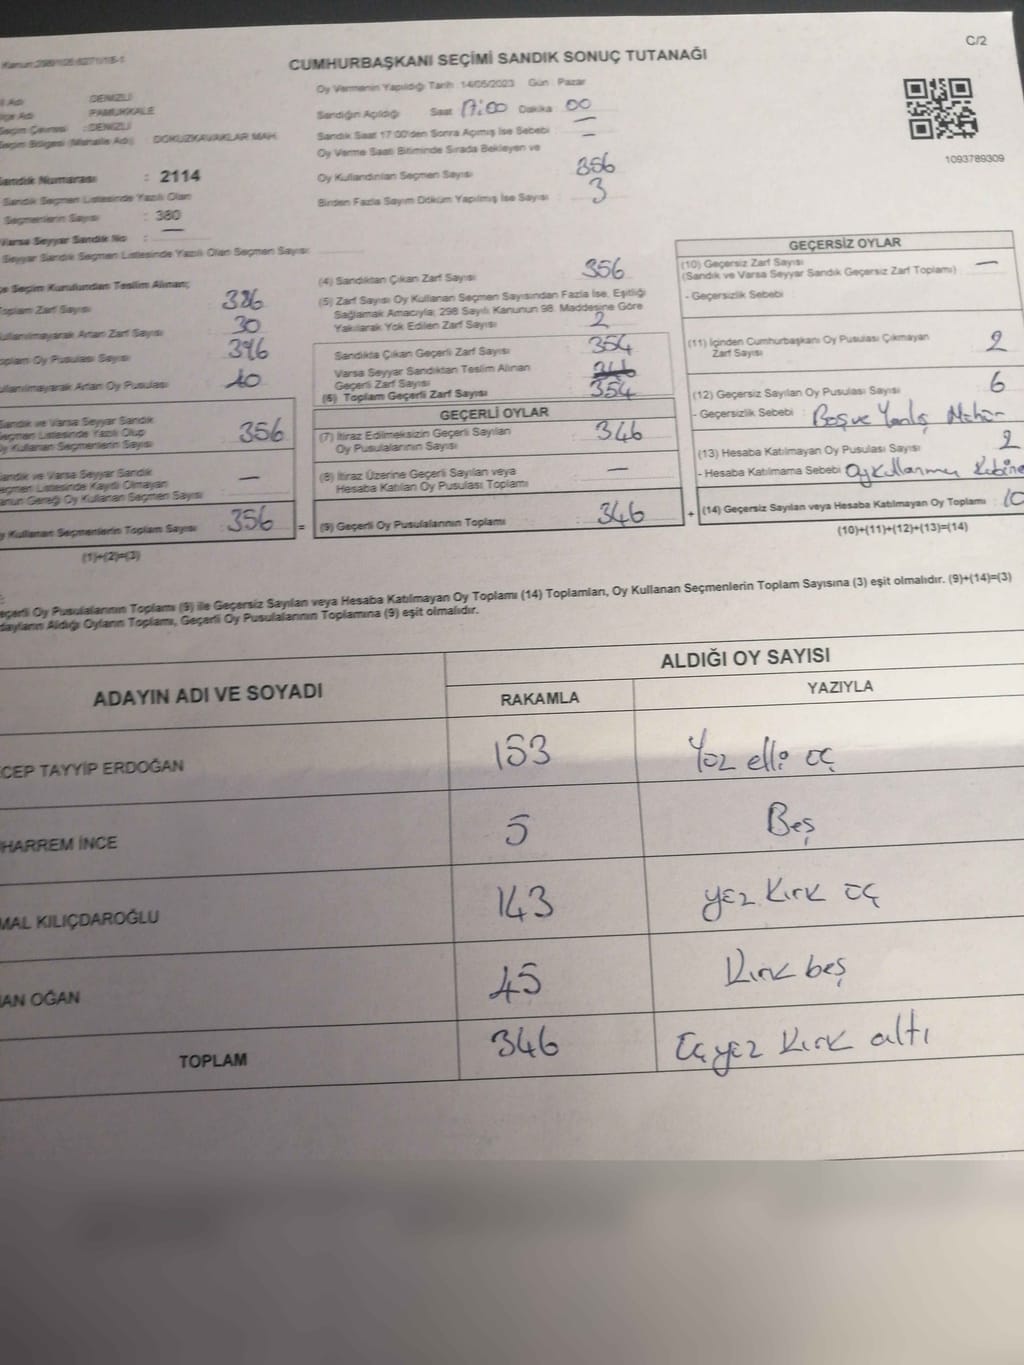 C/2
CUMHURBAŞKANI SEÇİMİ SANDIK SONUÇ TUTANAĞI
Oy Vermenin Yapıldığı Tarih : 14/05/2023 Gün : Pazar
DENİZLİ
PAMUKKALE
: DENİZLİ
Seçim Bölgesi (Mahalle Adı) DOKUZKAVAKLAR MAH.
Sandığın Açıldığı Saat 17:00 Dakika 00
Sandık Saat 17:00'den Sonra Açımış İse Sebebi —
Oy Verme Saati Bitiminde Sırada Bekleyen ve —
Oy Kullandırılan Seçmen Sayısı 356
Birden Fazla Sayım Döküm Yapılmış İse Sayısı 3
1093789309
Sandık Numarası : 2114
Sandık Seçmen Listesinde Yazılı Olan
Seçmenlerin Sayısı : 380
Varsa Seyyar Sandık No : —
Seyyar Sandık Seçmen Listesinde Yazılı Olan Seçmen Sayısı:
çe Seçim Kurulundan Teslim Alınan;
Toplam Zarf Sayısı 386
ullanılmayarak Artan Zarf Sayısı 30
oplam Oy Pusulası Sayısı 396
ullanılmayarak Artan Oy Pusulası 40
Sandık ve Varsa Seyyar Sandık
Seçmen Listesinde Yazılı Olup
Oy Kullanan Seçmenlerin Sayısı 356
Sandık ve Varsa Seyyar Sandık
Seçmen Listesinde Kayıtlı Olmayan
Kanun Gereği Oy Kullanan Seçmen Sayısı —
y Kullanan Seçmenlerin Toplam Sayısı 356 =
(1)+(2)=(3)
(4) Sandıktan Çıkan Zarf Sayısı 356
(5) Zarf Sayısı Oy Kullanan Seçmen Sayısından Fazla İse, Eşitliği
Sağlamak Amacıyla; 298 Sayılı Kanunun 98. Maddesine Göre
Yakılarak Yok Edilen Zarf Sayısı 2
Sandıkta Çıkan Geçerli Zarf Sayısı 354
Varsa Seyyar Sandıktan Teslim Alınan
Geçerli Zarf Sayısı 346
(6) Toplam Geçerli Zarf Sayısı 354
GEÇERLİ OYLAR
(7) İtiraz Edilmeksizin Geçerli Sayılan
Oy Pusulalarının Sayısı 346
(8) İtiraz Üzerine Geçerli Sayılan veya
Hesaba Katılan Oy Pusulası Toplamı —
(9) Geçerli Oy Pusulalarının Toplamı 346 +
GEÇERSİZ OYLAR
(10) Geçersiz Zarf Sayısı
(Sandık ve Varsa Seyyar Sandık Geçersiz Zarf Toplamı) —
- Geçersizlik Sebebi
(11) İçinden Cumhurbaşkanı Oy Pusulası Çıkmayan
Zarf Sayısı 2
(12) Geçersiz Sayılan Oy Pusulası Sayısı 6
- Geçersizlik Sebebi : Boş ve Yanlış Mühür
(13) Hesaba Katılmayan Oy Pusulası Sayısı 2
- Hesaba Katılmama Sebebi Oy Kullanma Kabine
(14) Geçersiz Sayılan veya Hesaba Katılmayan Oy Toplamı : 10
(10)+(11)+(12)+(13)=(14)
eçerli Oy Pusulalarının Toplamı (9) ile Geçersiz Sayılan veya Hesaba Katılmayan Oy Toplamı (14) Toplamları, Oy Kullanan Seçmenlerin Toplam Sayısına (3) eşit olmalıdır. (9)+(14)=(3)
dayların Aldığı Oyların Toplamı, Geçerli Oy Pusulalarının Toplamına (9) eşit olmalıdır.
ADAYIN ADI VE SOYADI
ALDIĞI OY SAYISI
RAKAMLA YAZIYLA
CEP TAYYİP ERDOĞAN 153 Yüz elli üç
HARREM İNCE 5 Beş
MAL KILIÇDAROĞLU 143 yüz kırk üç
AN OĞAN 45 Kırk beş
TOPLAM 346 Üç yüz kırk altı